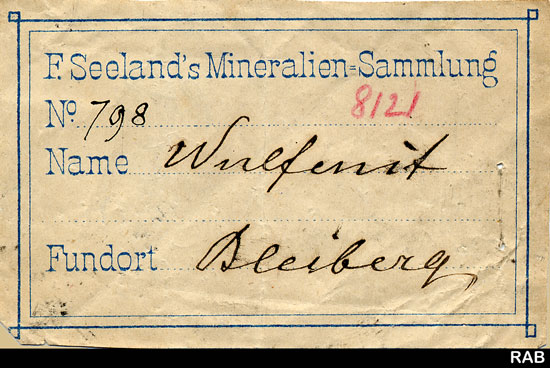 F. Seeland's Mineralien=Sammlung
No. 798
8121
Name Wulfenit
Fundort Bleiberg
RAB